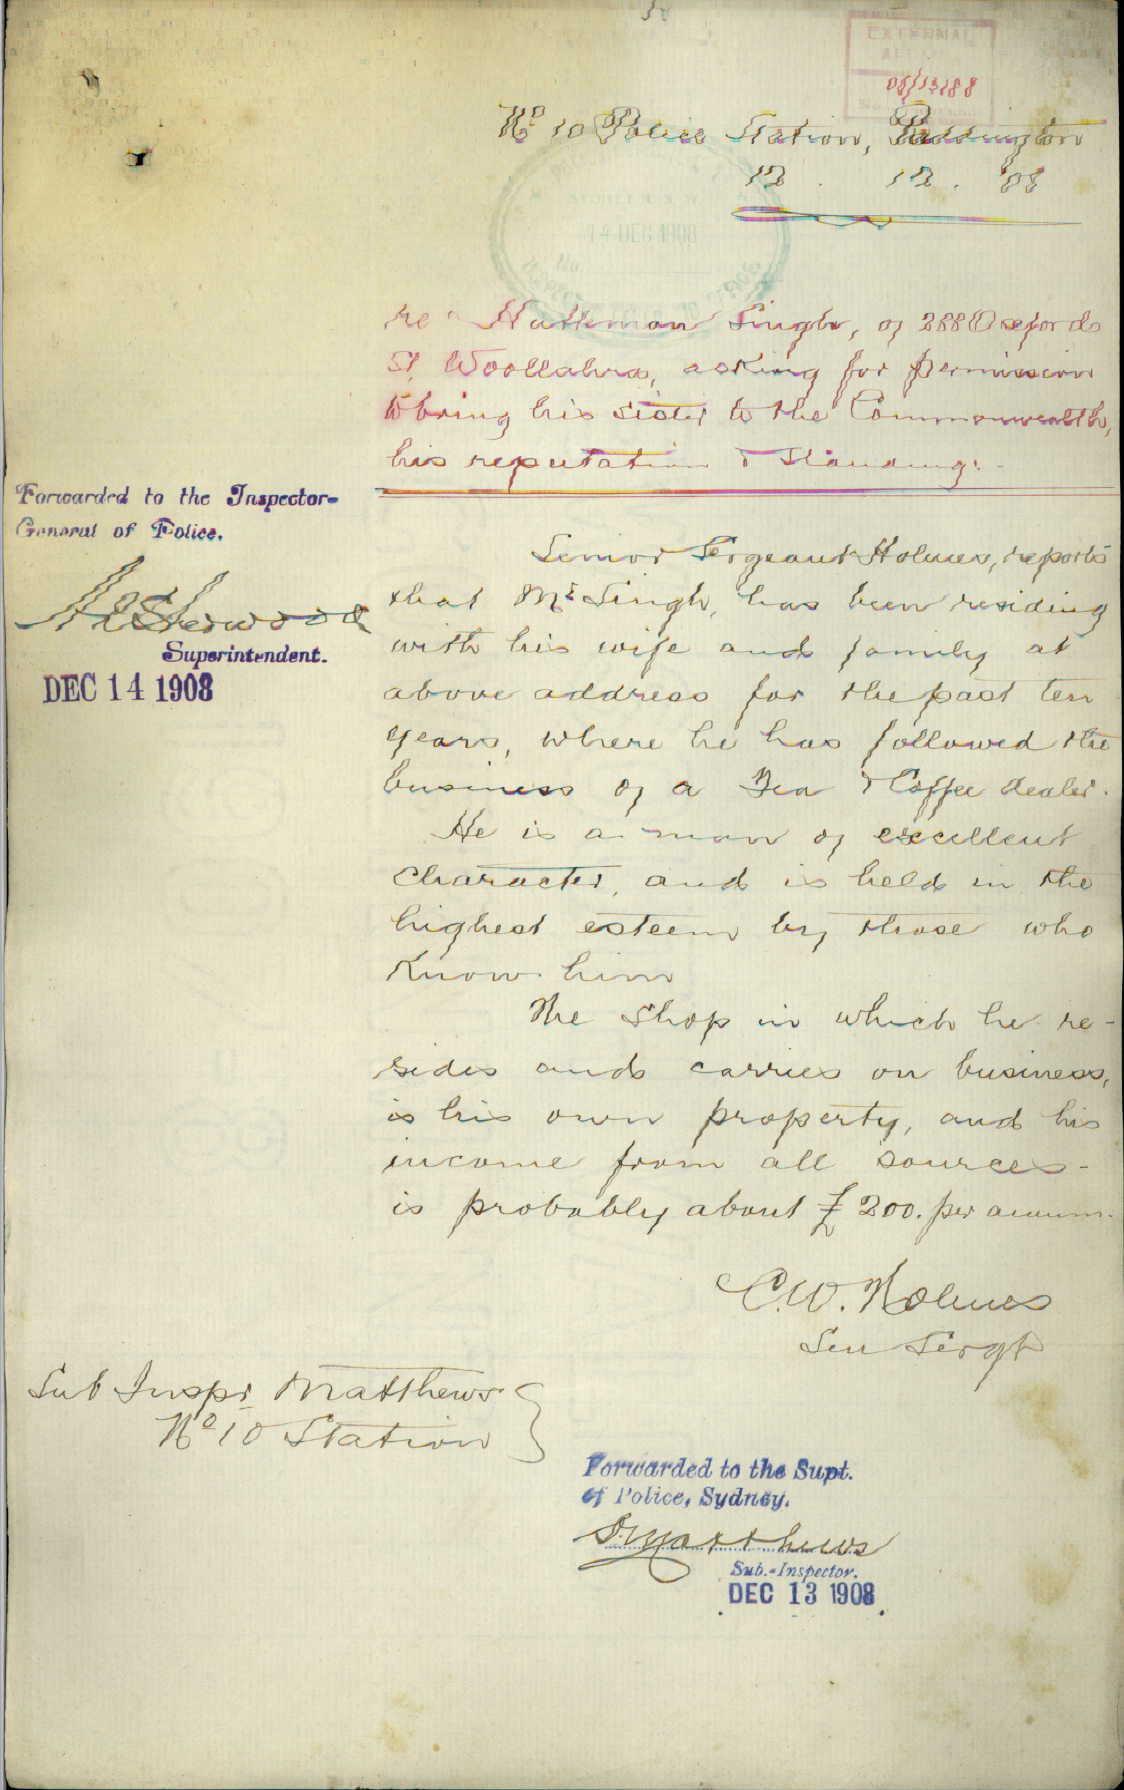 EXTERNAL
08/13188
No 10 Police Station, Paddington
12 . 12 . '08
SYDNEY N.S.W.
14 DEC 1908
re Hukeman Singh, of 288 Oxford
St, Woollahra, asking for permission
to bring his sister to the Commonwealth,
his reputation & standing:-
Forwarded to the Inspector-
General of Police.
Superintendent.
DEC 14 1908
Senior Sergeant Holmes, reports
that Mr Singh, has been residing
with his wife and family at
above address for the past ten
years, where he has followed the
business of a Tea & Coffee dealer.
He is a man of excellent
character, and is held in the
highest esteem by those who
know him
The shop in which he re-
sides and carries on business,
is his own property, and his
income from all sources-
is probably about £200. per annum.
C.W. Holmes
Sen Sergt
Sub Inspr Matthews
No 10 Station
Forwarded to the Supt.
of Police, Sydney.
Matthews
Sub.-Inspector.
DEC 13 1908